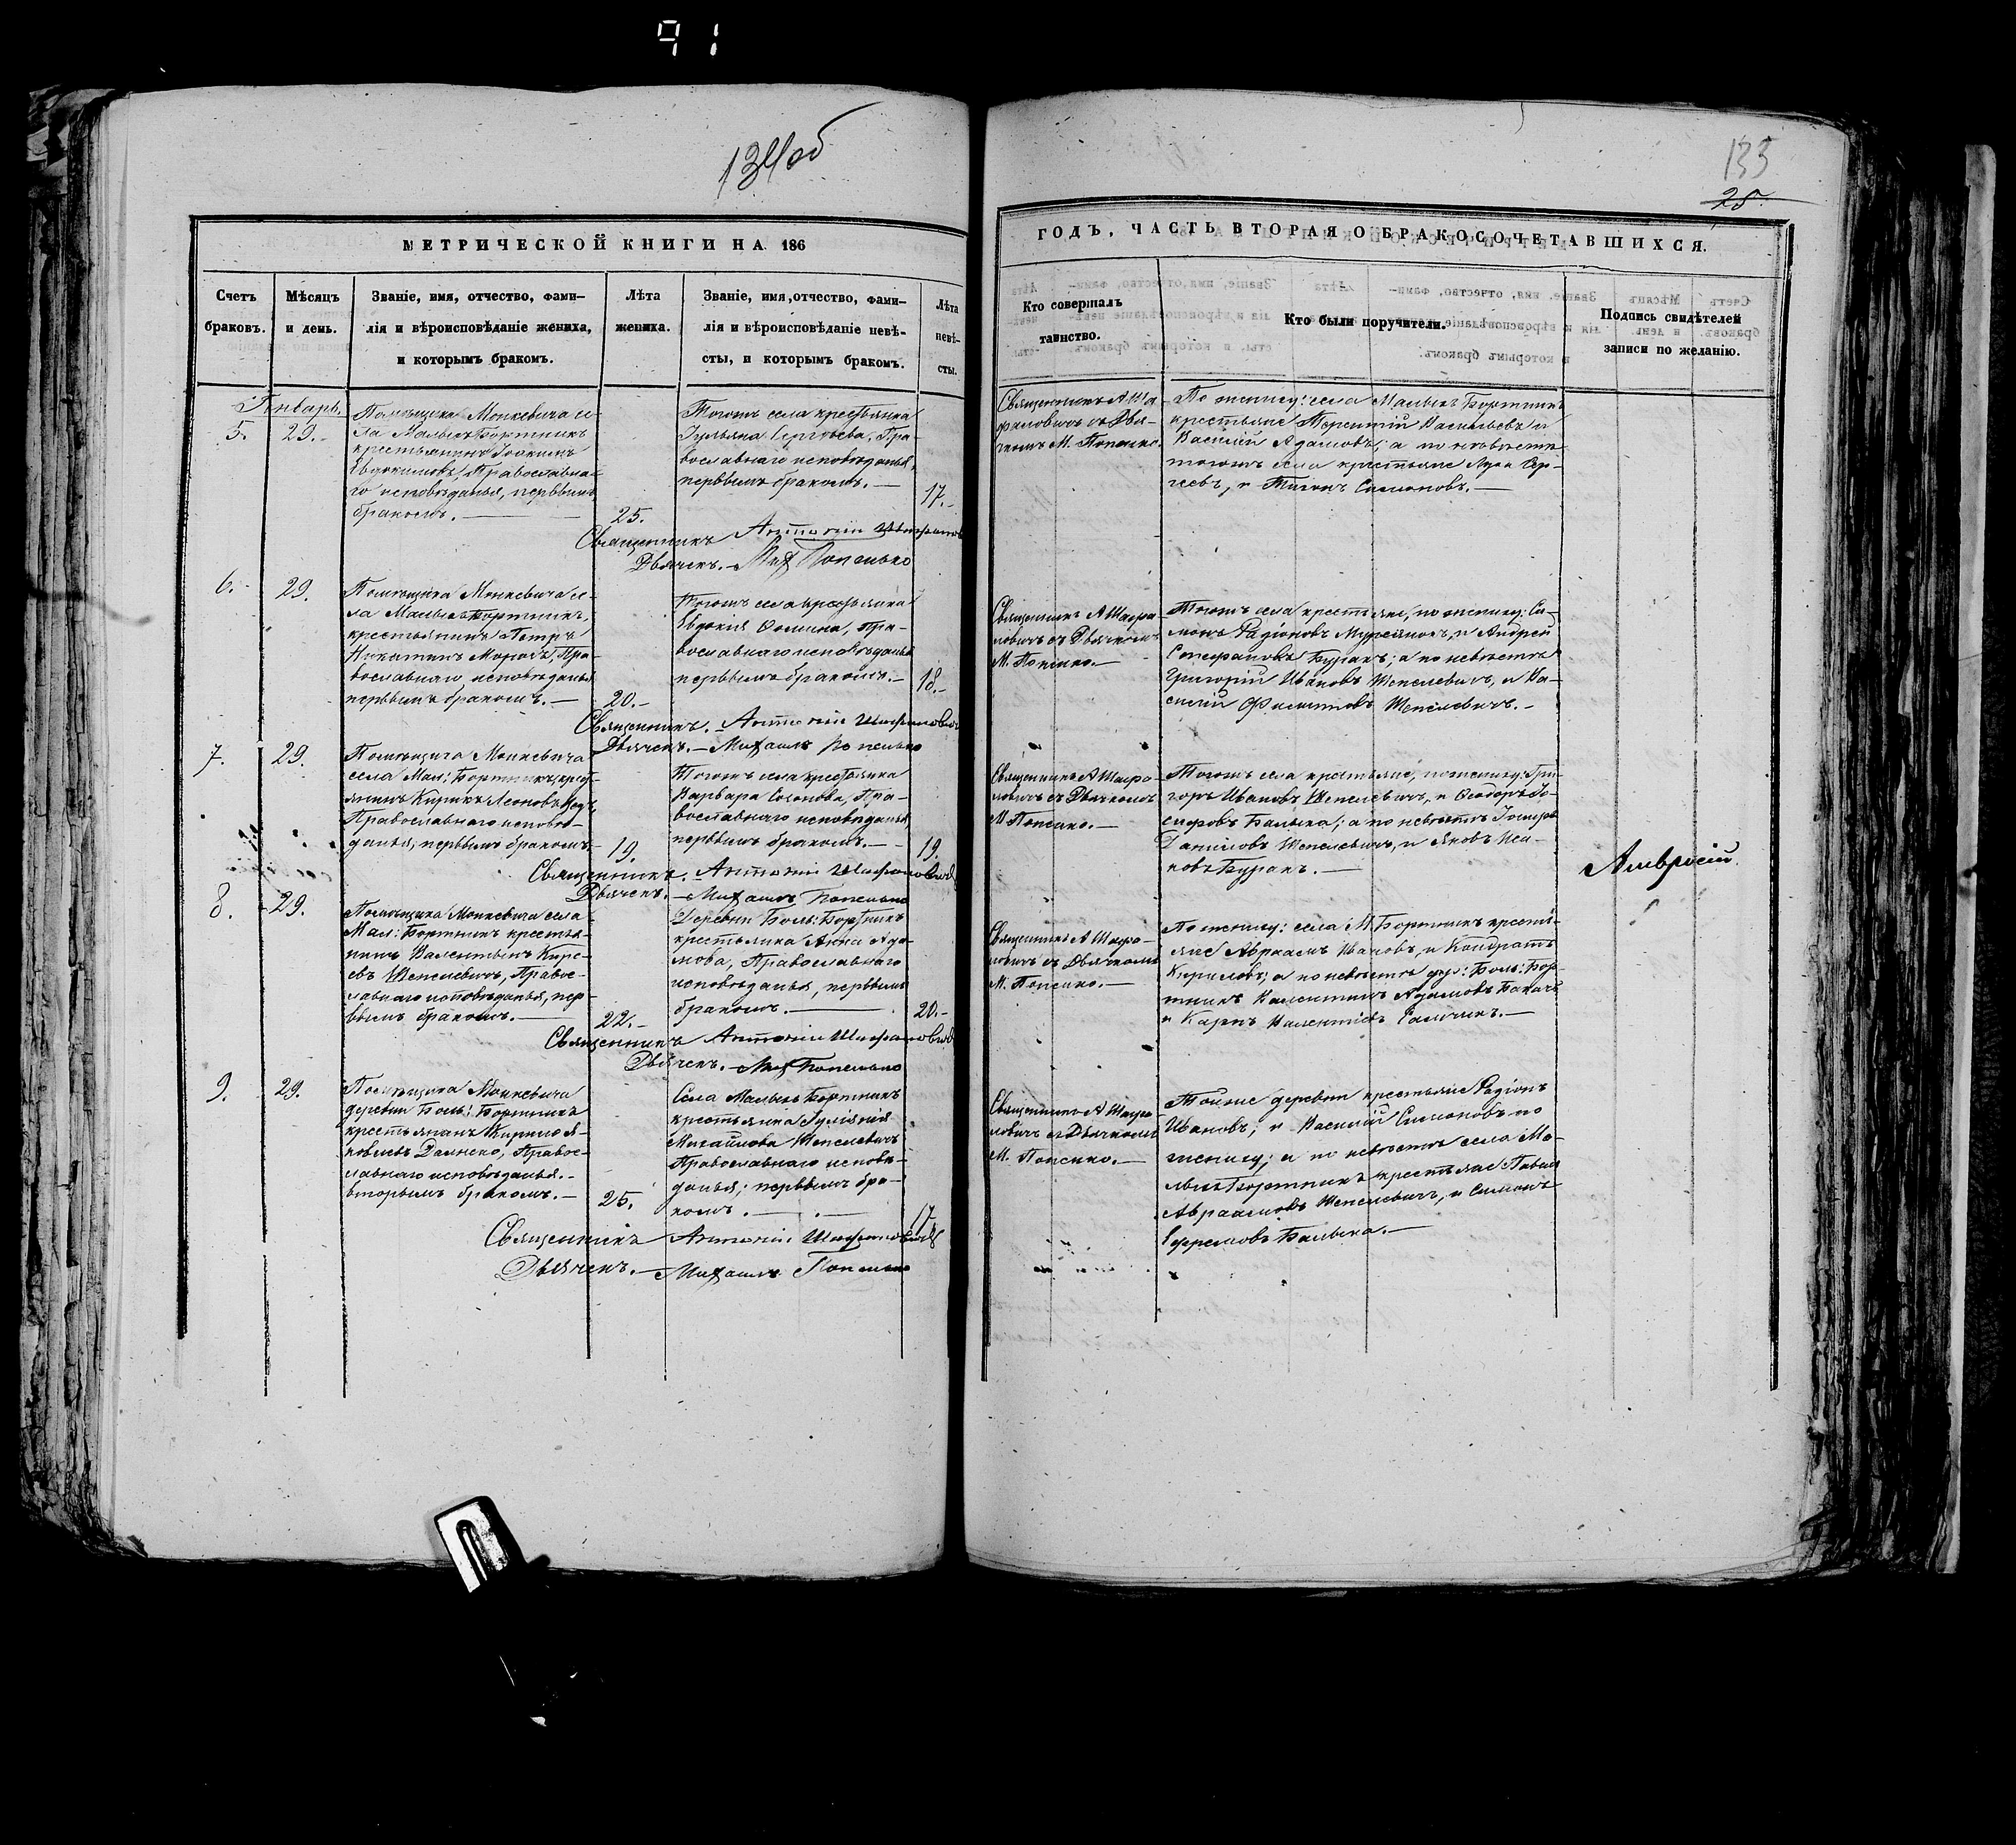 91
134об
МЕТРИЧЕСКОЙ КНИГИ НА 186
Счетъ
браковъ.
Мѣсяцъ
и день.
Званіе, имя, отчество, фами-
лія и вѣроисповѣданіе жениха,
и которымъ бракомъ.
Лѣта
жениха.
Званіе, имя, отчество, фами-
лія и вѣроисповѣданіе невѣ-
сты, и которымъ бракомъ.
Лѣта
невѣ-
сты.
Январь.
5.
29.
Помѣщика Монкевича се-
ла Малыхъ Бортникъ
крестьянинъ Іоакимъ
Евдокимовъ, Православна-
го исповѣданья, первымъ
бракомъ.
25.
Тогожъ села крестьянка
Іульяна Сергѣева, Пра-
вославнаго исповѣданья,
первымъ бракомъ.
17.
Священникъ Антоній
Дьячекъ. Мих Попенько
6.
29.
Помѣщика Монкевича се-
ла Малыхъ Бортникъ,
крестьянинъ Петръ
Никитинъ Морозъ, Пра-
вославнаго исповѣданья
первымъ бракомъ.
20.
Тогожъ села крестьянка
Евдокія Фомина, Пра-
вославнаго исповѣданья
первымъ бракомъ.
18.
Священникъ. Антоній
Дьячекъ. Михаилъ Попенько
7.
29.
Помѣщика Монкевича
села Мал: Бортникъ крест-
янинъ Кирикъ Леоновъ
Православнаго исповѣ-
данья, первымъ бракомъ
19.
Тогожъ села крестьянка
Варвара Пра-
вославнаго исповѣданья
первымъ бракомъ.
19.
Священникъ. Антоній
Дьячекъ. Михаилъ Попенько
8.
29.
Помѣщика Монкевича села
Мал: Бортникъ крестья-
нинъ Валентинъ Кире-
евъ Шепелевичъ, Правос-
лавнаго исповѣданья, пер-
вымъ бракомъ.
22.
Деревни Боль: Бортникъ
крестьянка Анна Ада-
мова, Православнаго
исповѣданья, первымъ
бракомъ.
20.
Священникъ Антоній
Дьячекъ. Мих Попенько
9.
29.
Помѣщика Монкевича
деревни Боль: Бортникъ
крестьянинъ Кирило Я-
ковлевъ Правос-
лавнаго исповѣданья.
вторымъ бракомъ.
25.
Села Малыхъ Бортникъ
крестьянка Іуліянія
Михайлова Шепелевичъ
Православнаго исповѣ-
данья; первымъ бра-
комъ.
17
Священникъ Антоній
Дьячекъ. Михаилъ Попенько
133
25.
ГОДЪ, ЧАСТЬ ВТОРАЯ О БРАКОСОЧЕТАВШИХСЯ.
Кто совершалъ
таинство.
Кто были поручители.
Подпись свидѣтелей
записи по желанію.
Священникъ А Ша
фановичъ съ Дья-
чкомъ М. Попенко.
По жениху: села Малыхъ Бортникъ
крестьяне Терентій Васильевъ и
Василій Адамовъ; а по невѣстѣ
тогожъ села крестьяне Лука Сер-
геевъ, и Титъ Симоновъ.
Священникъ А Шафа
новичъ съ Дьячкомъ
М. Попенко.
Тогожъ села крестьяне, по жениху: Си-
монъ Радіоновъ и Андрей
Стефановъ Буракъ; а по невѣстѣ
Григорій Ивановъ Шепелевичъ, и Ва-
силій Филиповъ Шепелевичъ.
Священникъ А Шафа-
новичъ съ Дьячкомъ
М Попенко.
Тогожъ села крестьяне, по жениху: Гри-
горъ Ивановъ Шепелевичъ, и Ѳеодоръ Іо-
сифовъ Балыка; а по невѣстѣ Іосифъ
Даниловъ Шепелевичъ, и Яковъ Иса-
ковъ Буракъ.
Амвросій
Священникъ А Шафа-
новичъ съ Дьячкомъ
М. Попенко.
По жениху: села М. Бортникъ крестья-
яне Авраамъ Ивановъ, и Кондратъ
Кириловъ; а по невѣстѣ дер: Боль: Бор-
тникъ Валентинъ Адамовъ
и Карпъ Валентіевъ
Священникъ А Шафа
новичъ съ Дьячкомъ
М. Попенко.
Тойже деревни крестьяне Радіонъ
Ивановъ; и Василій Симоновъ по
жениху; а по невѣстѣ села Ма-
лыхъ Бортникъ крестьяне Павелъ
Авраамовъ Шепелевичъ, и Симонъ
Ефремовъ Балыка.